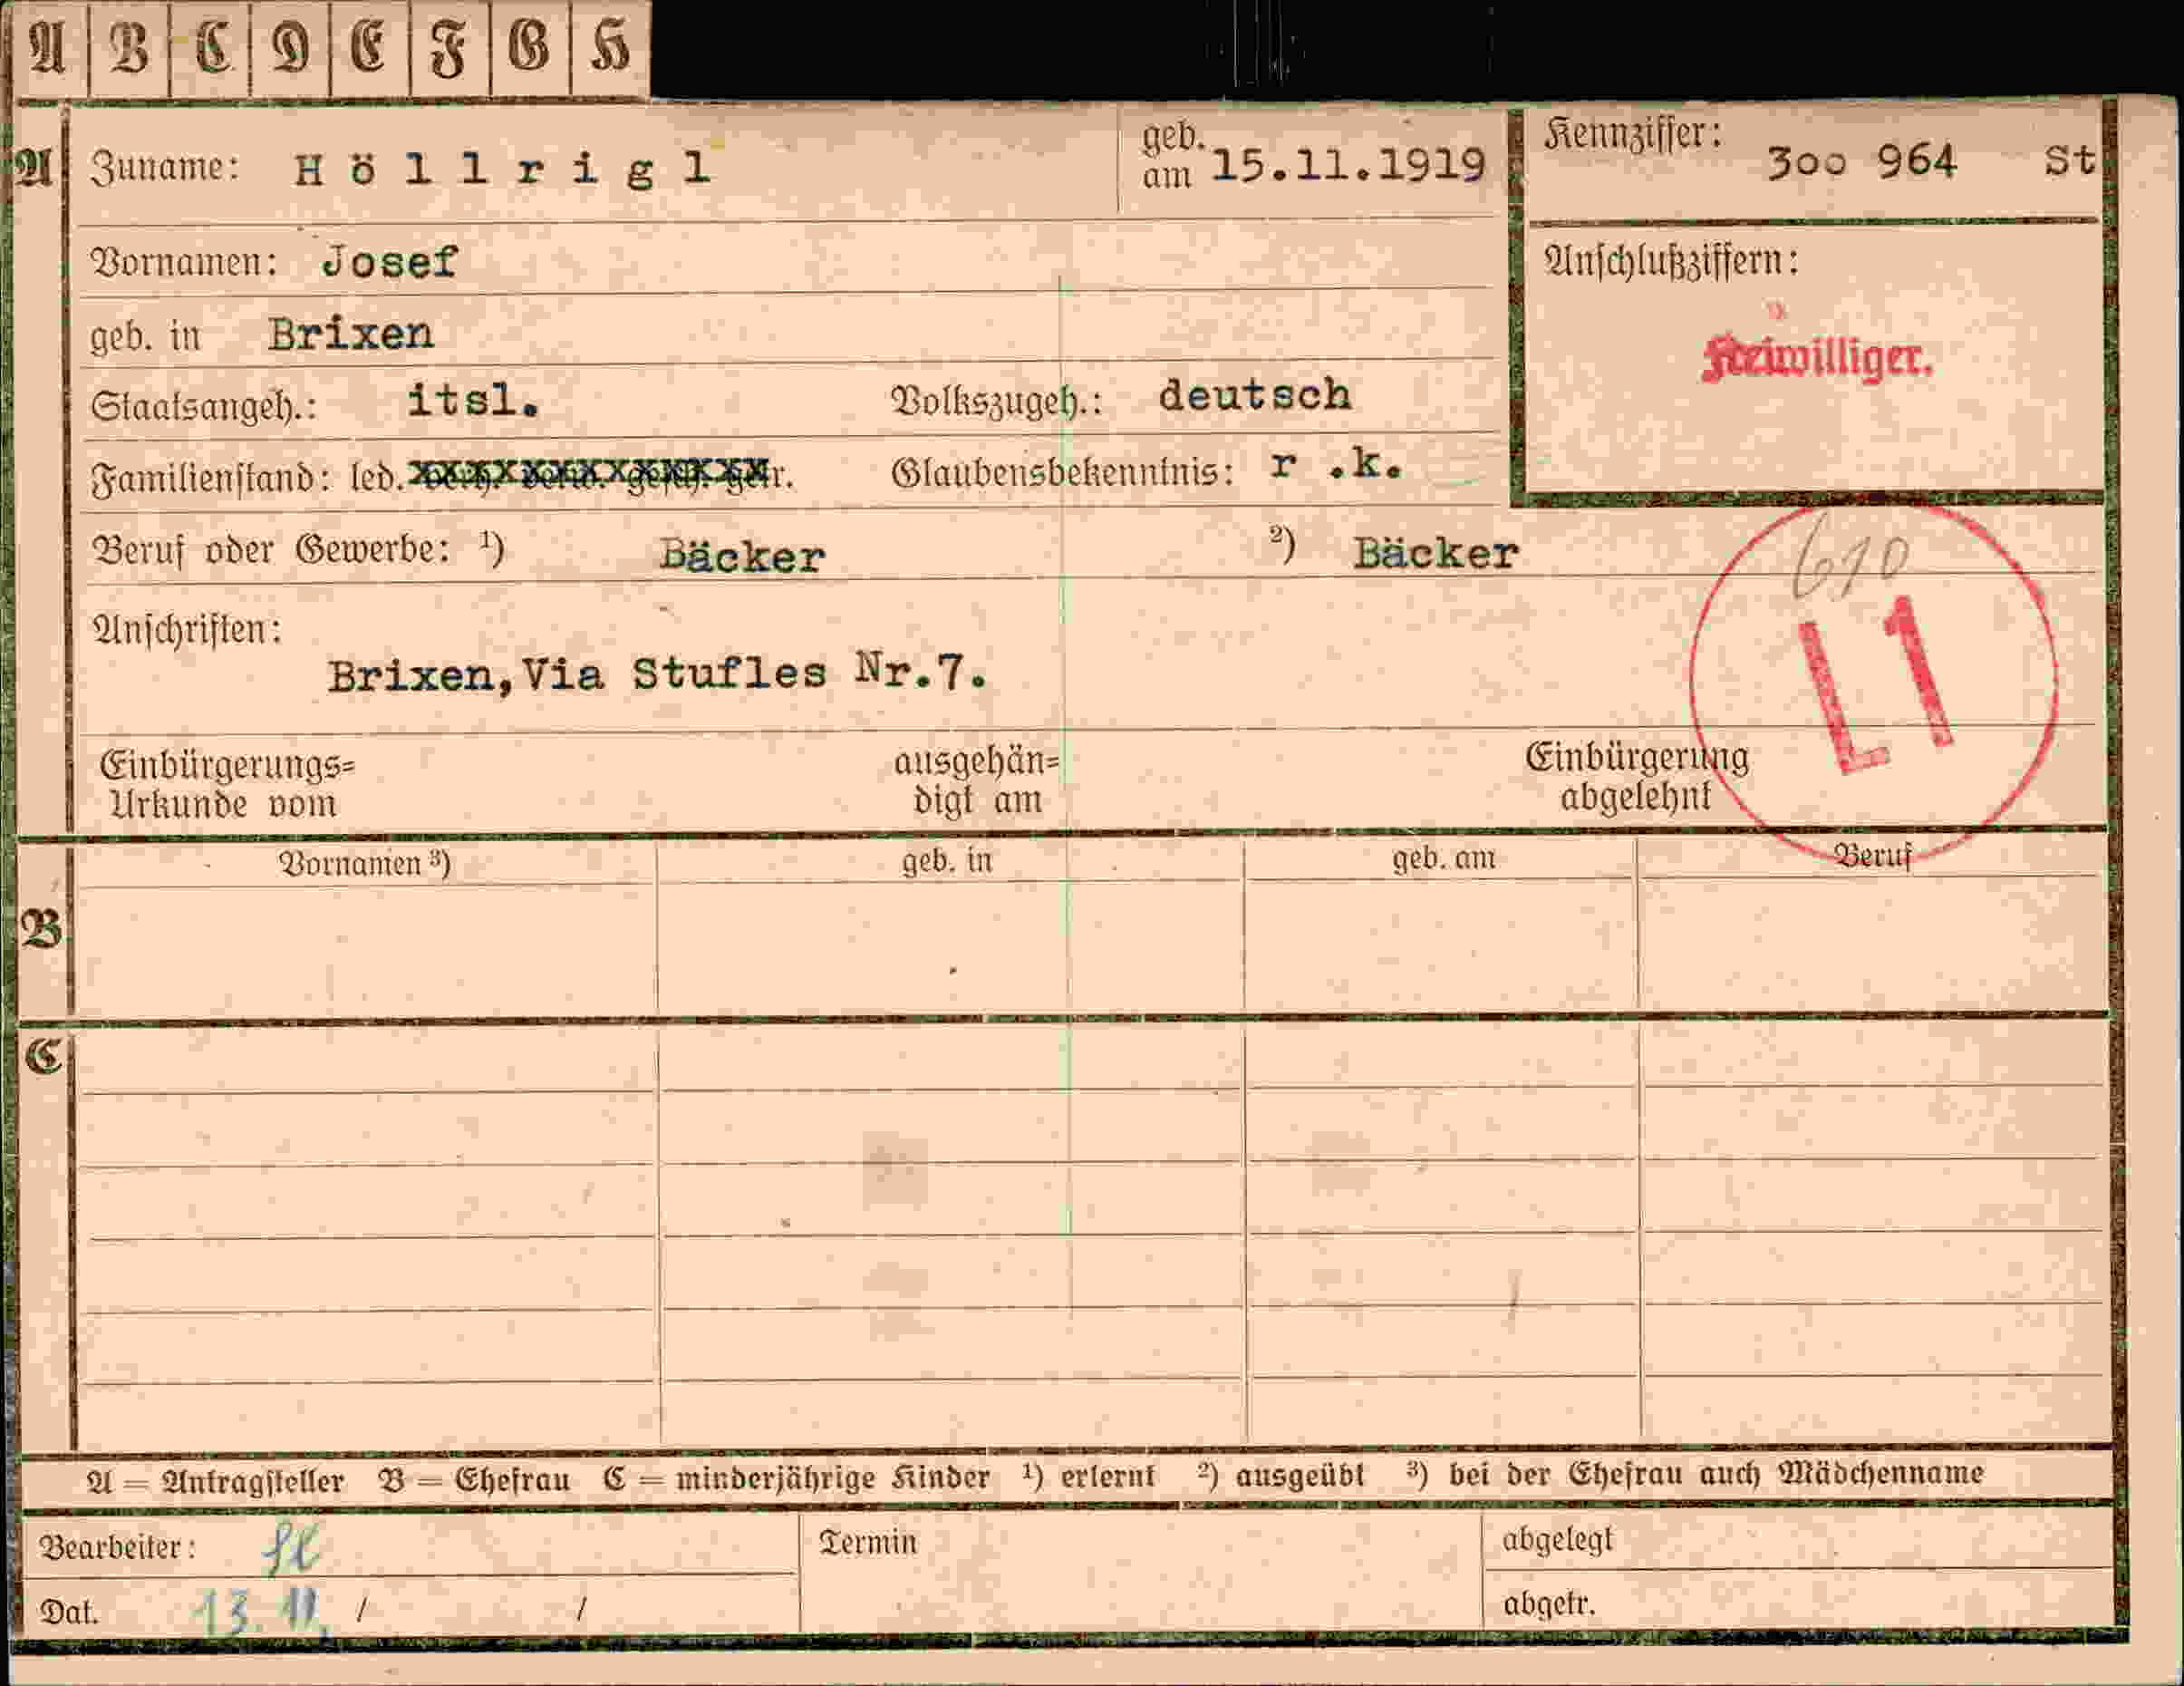 A B C D E F G H
A Zuname: Höllrigl geb. am 15.11.1919 Kennziffer: 300 964 St
Vornamen: Josef Anschlußziffern:
geb. in Brixen Freiwilliger.
Staatsangeh.: itsl. Volkszugeh.: deutsch
Familienstand: led. Glaubensbekenntnis: r .k.
Beruf oder Gewerbe: ¹) Bäcker ²) Bäcker 610
Anschriften: L1
Brixen, Via Stufles Nr.7.
Einbürgerungs= ausgehän= Einbürgerung
Urkunde vom digt am abgelehnt
Vornamen ³) geb. in geb. am Beruf
B
C
A = Antragsteller B = Ehefrau C = minderjährige Kinder ¹) erlernt ²) ausgeübt ³) bei der Ehefrau auch Mädchenname
Bearbeiter: Termin abgelegt
Dat. 13. 11. / / abgetr.